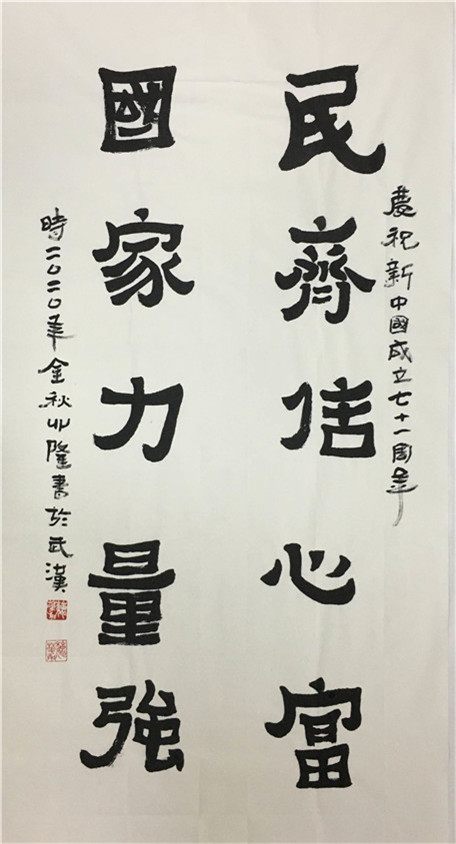 慶祝新中國成立七十一周年
民齊信心富
國家力量強
時二〇二〇年金秋卯隆書於武漢